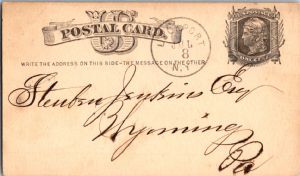 U S
POSTAL CARD.
WRITE THE ADDRESS ON THIS SIDE-THE MESSAGE ON THE OTHER
LOCKPORT
JUL
8
N.Y.
Steuben Jenkins Esq
Wyoming
Pa